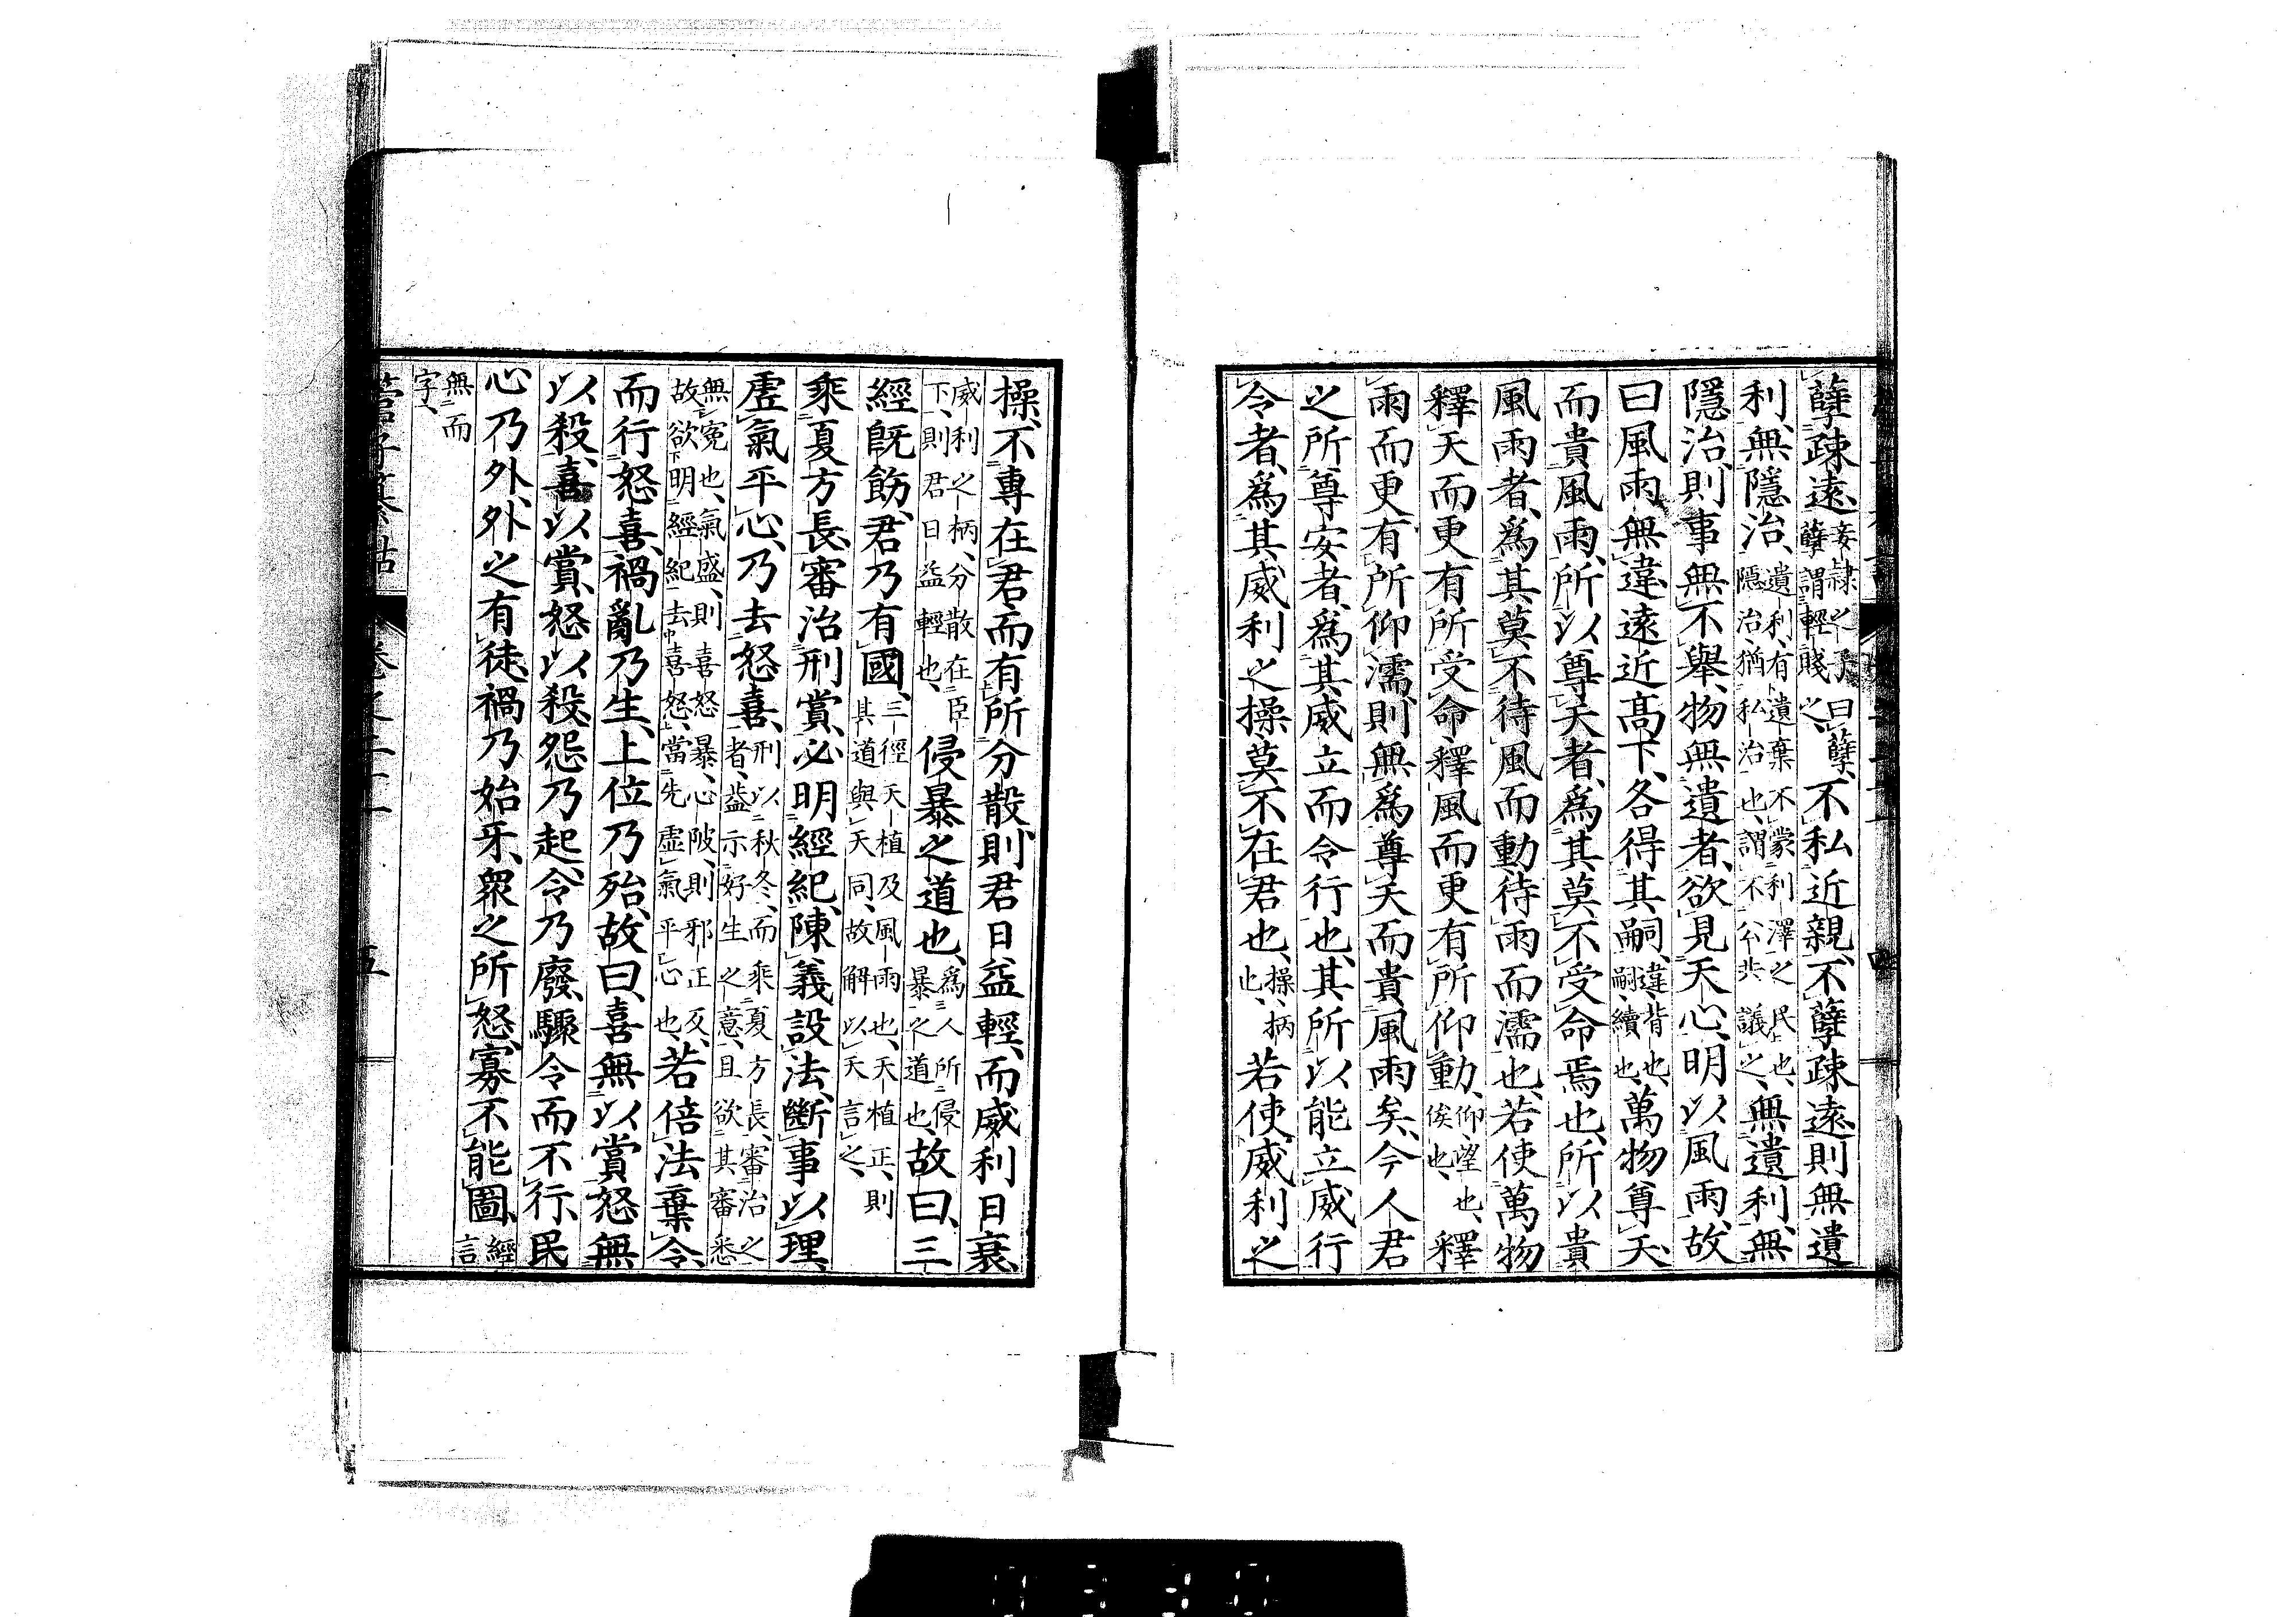 孽疎遠、妾隷之子曰孽、孽謂輕賤之、不私近親、不孽疎遠、則無遺
利、無隱治、遺利、有遺棄不蒙利澤之民也、隱治、猶私治也、謂不公共議之、無遺利、無
隱治、則事無不舉、物無遺者、欲見天心、明以風雨、故
曰、風雨無違、遠近高下、各得其嗣、違、背也、嗣、續也、萬物尊天、
而貴風雨、所以尊天者、爲其莫不受命焉也、所以貴
風雨者、爲其莫不待風而動、待雨而濡也、若使萬物
釋天而更有所受命、釋風而更有所仰動、仰、望也、俟也、釋
雨而更有所仰濡、則無爲尊天而貴風雨矣、今人君
之所尊安者、爲其威立而令行也、其所以能立威行
令者、爲其威利之操、莫不在君也、操、柄也、若使威利之
操、不專在君、而有所分散、則君日益輕、而威利日衰、
威利之柄、分散在臣下、則君日益輕也、侵暴之道也、爲人所侵暴之道也、故曰、三
經既飭、君乃有國、三徑天植及風雨也、天植正、則其道與天同、故解以天言之、
乘夏方長、審治刑賞、必明經紀、陳義設法、斷事以理、
虛氣平心、乃去怒喜、刑以秋冬、而乘夏方長、審治之者、益示好生之意、且欲其審悉
無冤也、氣盛、則喜怒暴、心陂、則邪正反、故欲明經紀去喜怒、當先虛氣平心也、若倍法棄令、
而行怒喜、禍亂乃生、上位乃殆、故曰、喜無以賞、怒無
以殺、喜以賞、怒以殺、怨乃起、令乃廢、驟令而不行、民
心乃外、外之有徒、禍乃始牙、衆之所怒、寡不能圖、經言
無而字、
管子纂詁 卷之二 五